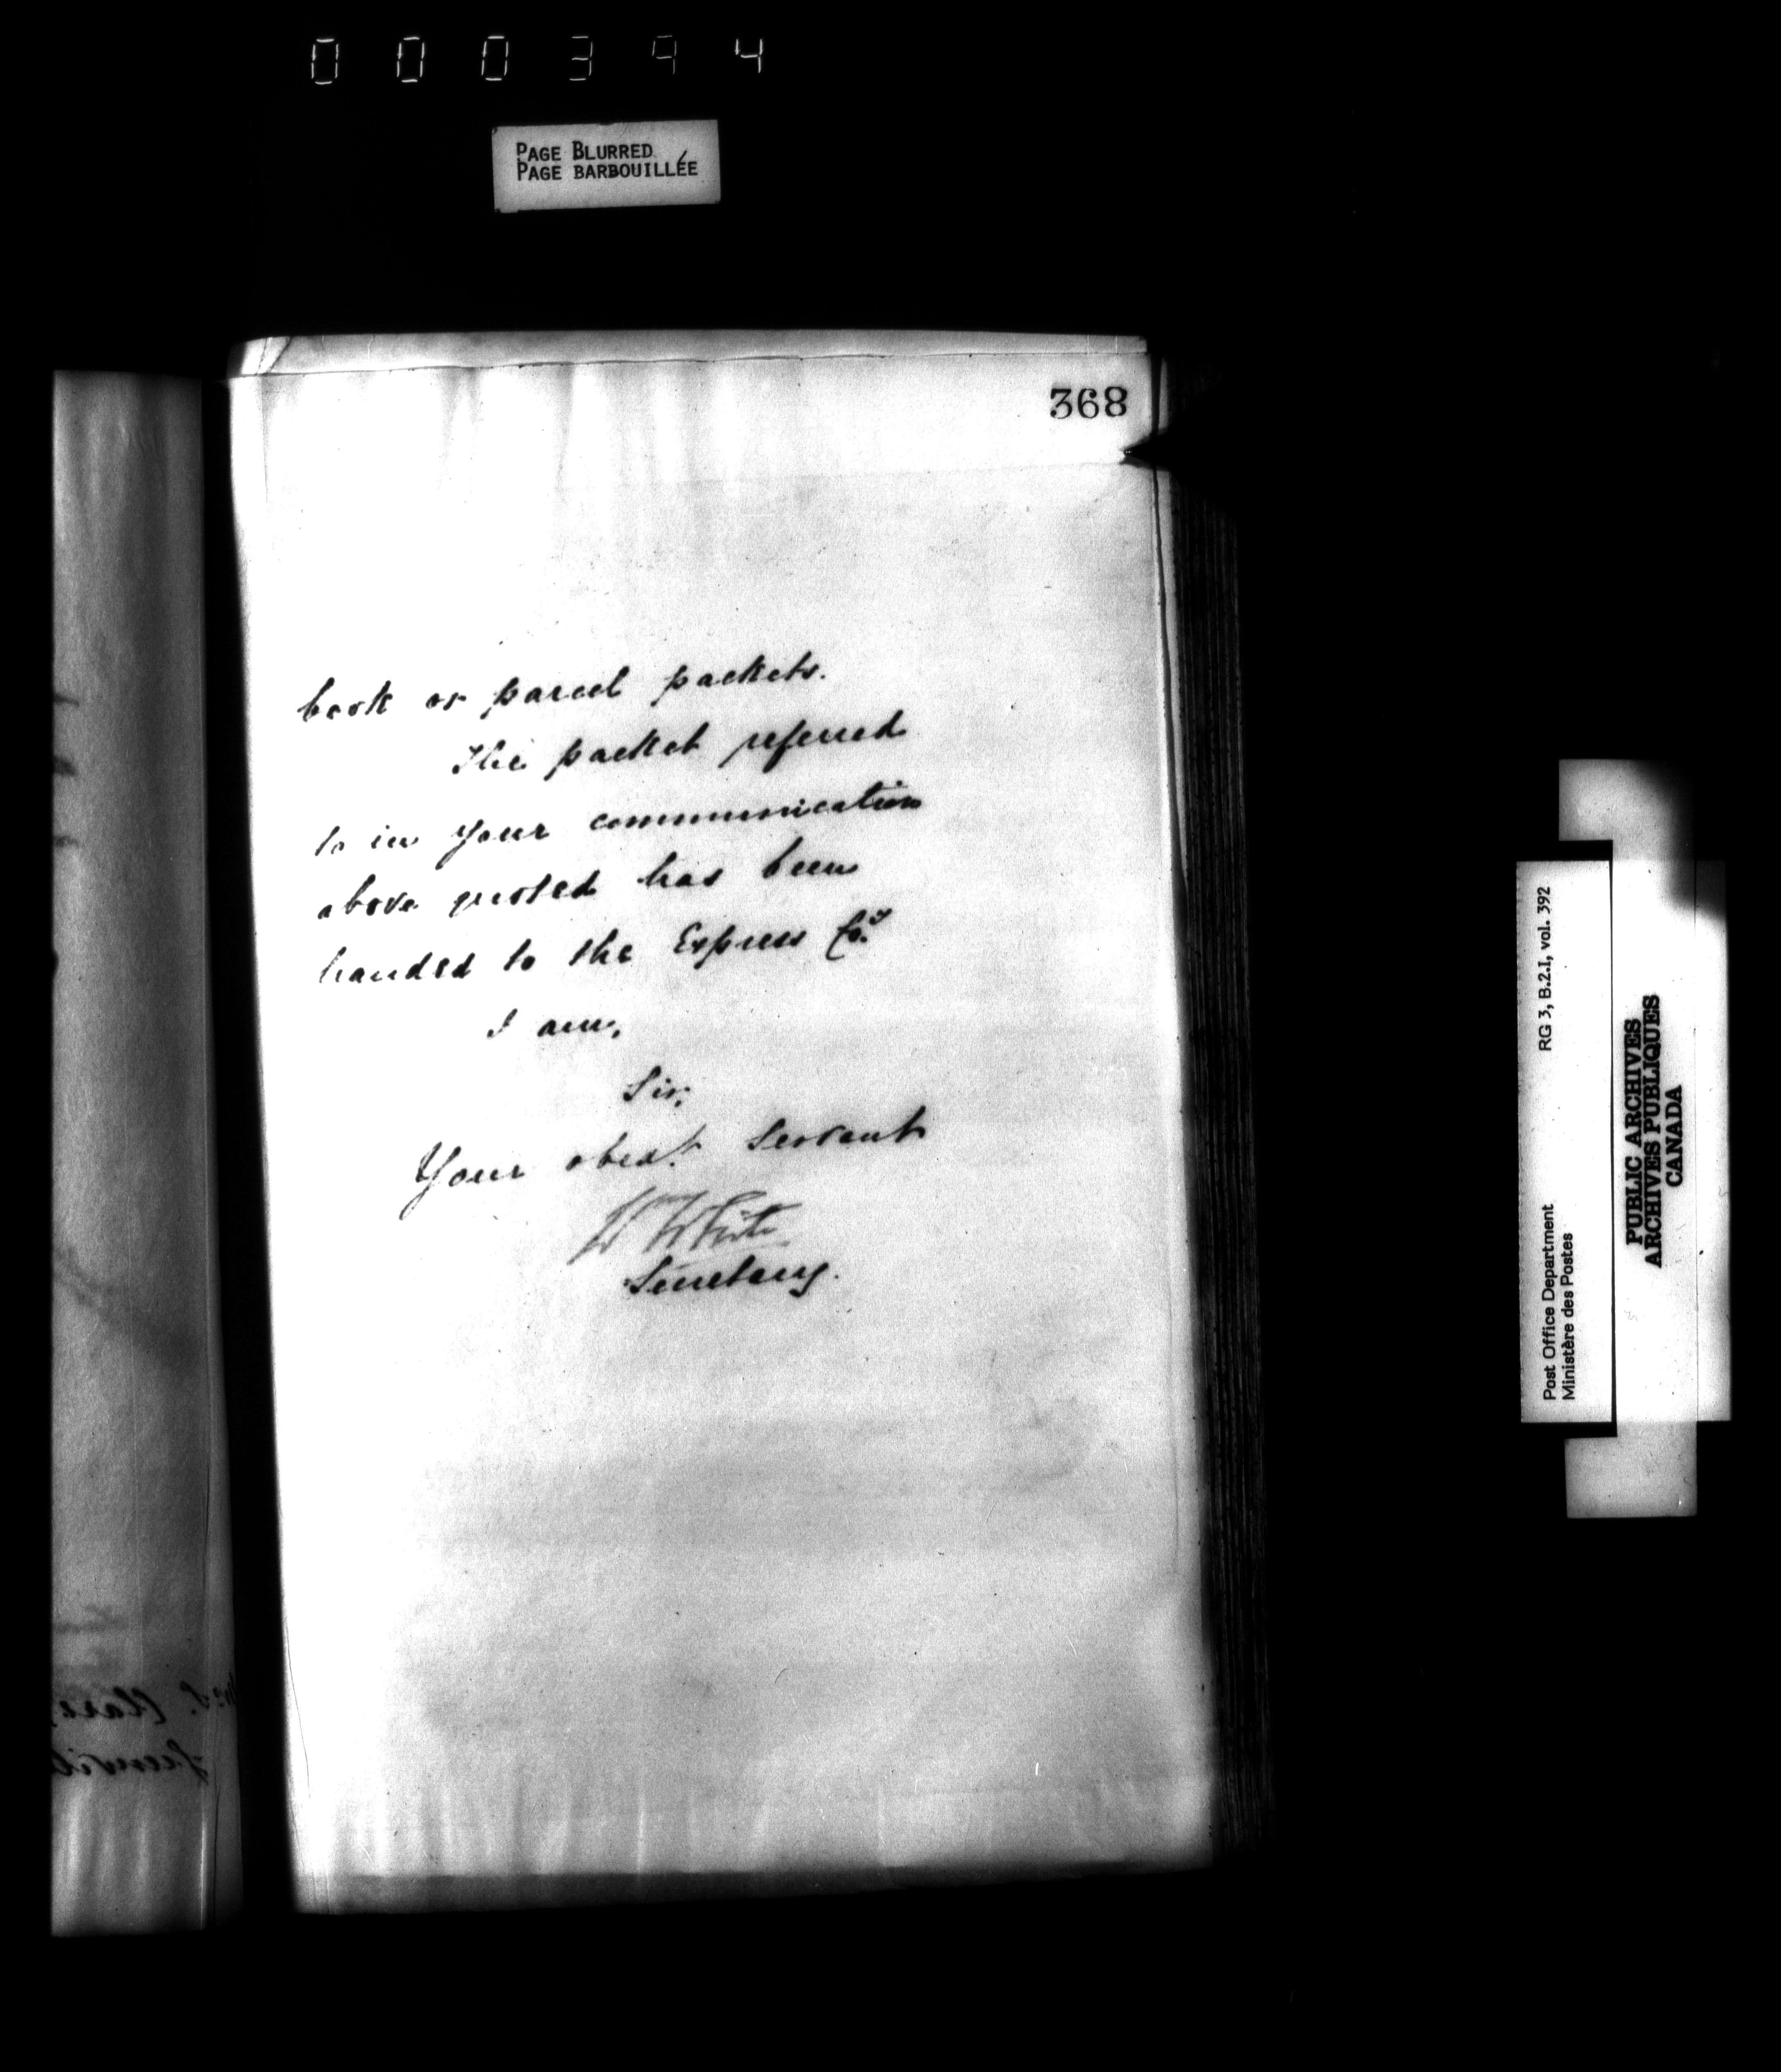 000394
PAGE BLURRED
PAGE BARBOUILLÉE
368
book or parcel packets.
The packet referred
to in your communication
above quoted has been
handed to the Express Coy
I am,
Sir,
Your obedt. Servant
Wm White
Secretary.
Post Office Department RG 3, B.2.I, vol. 392
Ministère des Postes
PUBLIC ARCHIVES
ARCHIVES PUBLIQUES
CANADA